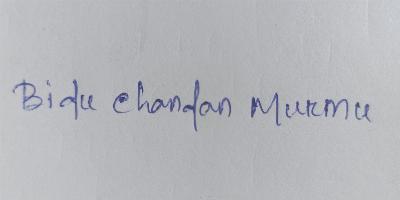 Bidu Chandan Murmu